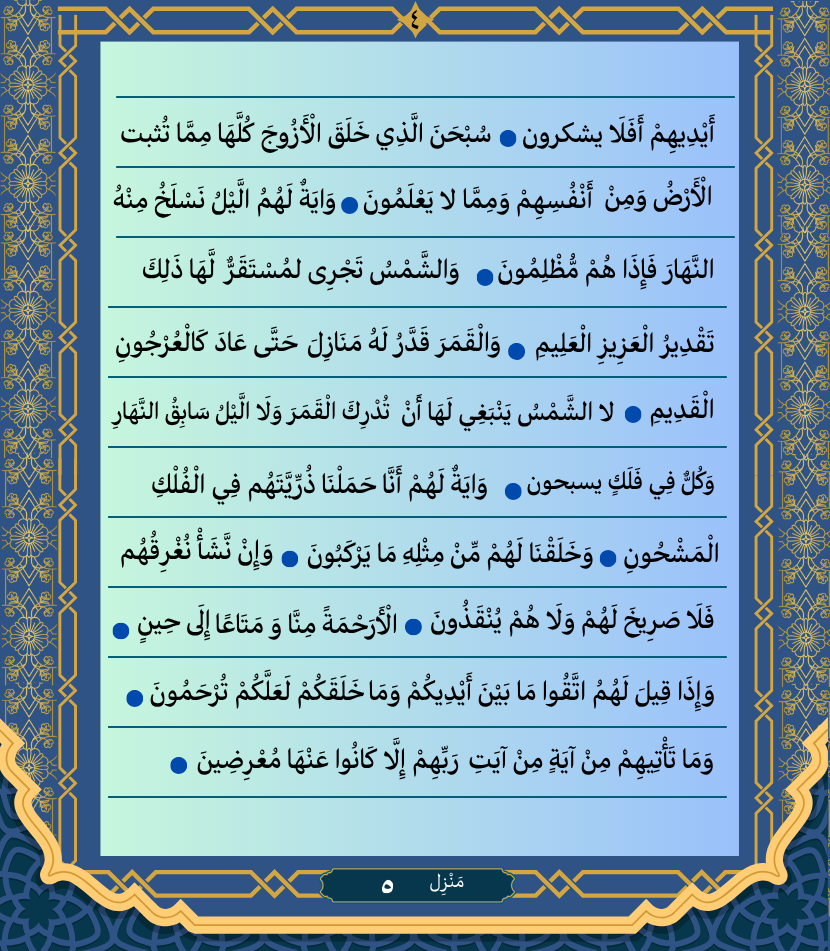 ٤
أَيْدِيهِمْ أَفَلَا يشكرون ● سُبْحَنَ الَّذِي خَلَقَ الْأَزْوجَ كُلَّهَا مِمَّا تُثبت
الْأَرْضُ وَمِنْ أَنْفُسِهِمْ وَمِمَّا لا يَعْلَمُونَ ● وَايَةٌ لَهُمُ الَّيْلُ نَسْلَخُ مِنْهُ
النَّهَارَ فَإِذَا هُمْ مُّظْلِمُونَ ● وَالشَّمْسُ تَجْرِى لمُسْتَقَرٌّ لَّهَا ذَلِكَ
تَقْدِيرُ الْعَزِيزِ الْعَلِيمِ ● وَالْقَمَرَ قَدَّرُ لَهُ مَنَازِلَ حَتَّى عَادَ كَالْعُرْجُونِ
الْقَدِيمِ ● لا الشَّمْسُ يَنْبَغِي لَهَا أَنْ تُدْرِكَ الْقَمَرَ وَلَا الَّيْلُ سَابِقُ النَّهَارِ
وَكُلٌّ فِي فَلَكٍ يسبحون ● وَايَةٌ لَهُمْ أَنَّا حَمَلْنَا ذُرِّيَّتَهُم فِي الْفُلْكِ
الْمَشْحُونِ ● وَخَلَقْنَا لَهُمْ مِّنْ مِثْلِهِ مَا يَرْكَبُونَ ● وَإِنْ نَّشَأْ نُغْرِقُهُم
فَلَا صَرِيخَ لَهُمْ وَلَا هُمْ يُنْقَذُونَ ● الْأَرَحْمَةً مِنَّا وَ مَتَاعًا إِلَى حِينٍ ●
وَإِذَا قِيلَ لَهُمُ اتَّقُوا مَا بَيْنَ أَيْدِيكُمْ وَمَا خَلَقَكُمْ لَعَلَّكُمْ تُرْحَمُونَ ●
وَمَا تَأْتِيهِمْ مِنْ آيَةٍ مِنْ آيَتِ رَبِّهِمْ إِلَّا كَانُوا عَنْهَا مُعْرِضِينَ ●
مَنْزِل ٥